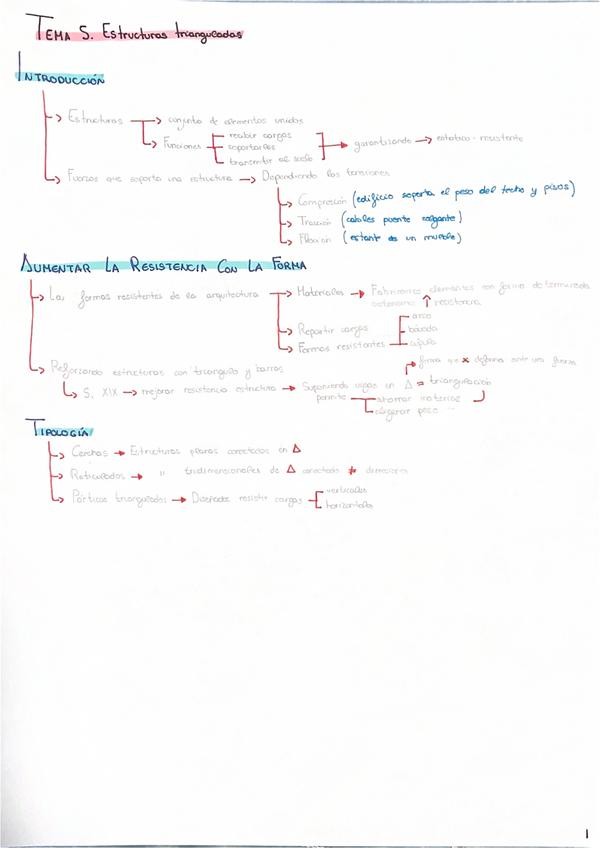 TEMA 5. Estructuras trianguladas
INTRODUCCIÓN
Estructuras → conjunto de elementos unidos
Funciones recibir cargas
soportarlas → garantizando → estático-resistente
transmitir al suelo
Fuerzas que soporta una estructura → Dependiendo las tensiones
Compresión (edificio soporta el peso del techo y pisos)
Tracción (cables puente colgante)
Flexión (estante de un mueble)
AUMENTAR LA RESISTENCIA CON LA FORMA
Las formas resistentes de la arquitectura → Materiales → Fabricamos elementos con forma determinada
↑ resistencia
Repartir cargas
Formas resistentes
arco
bóveda
cúpula
Reforzando estructuras con triángulos y barras
forma que × deforma ante una fuerza
S. XIX → mejorar resistencia estructura → vigas en Δ = triangulación
permite ahorrar material
aligerar peso
TIPOLOGÍA
Cerchas → Estructuras planas conectadas en Δ
Reticulados → " tridimensionales de Δ conectado ≠ direcciones
Pórticos triangulados → Diseñados resistir cargas
verticales
horizontales
1